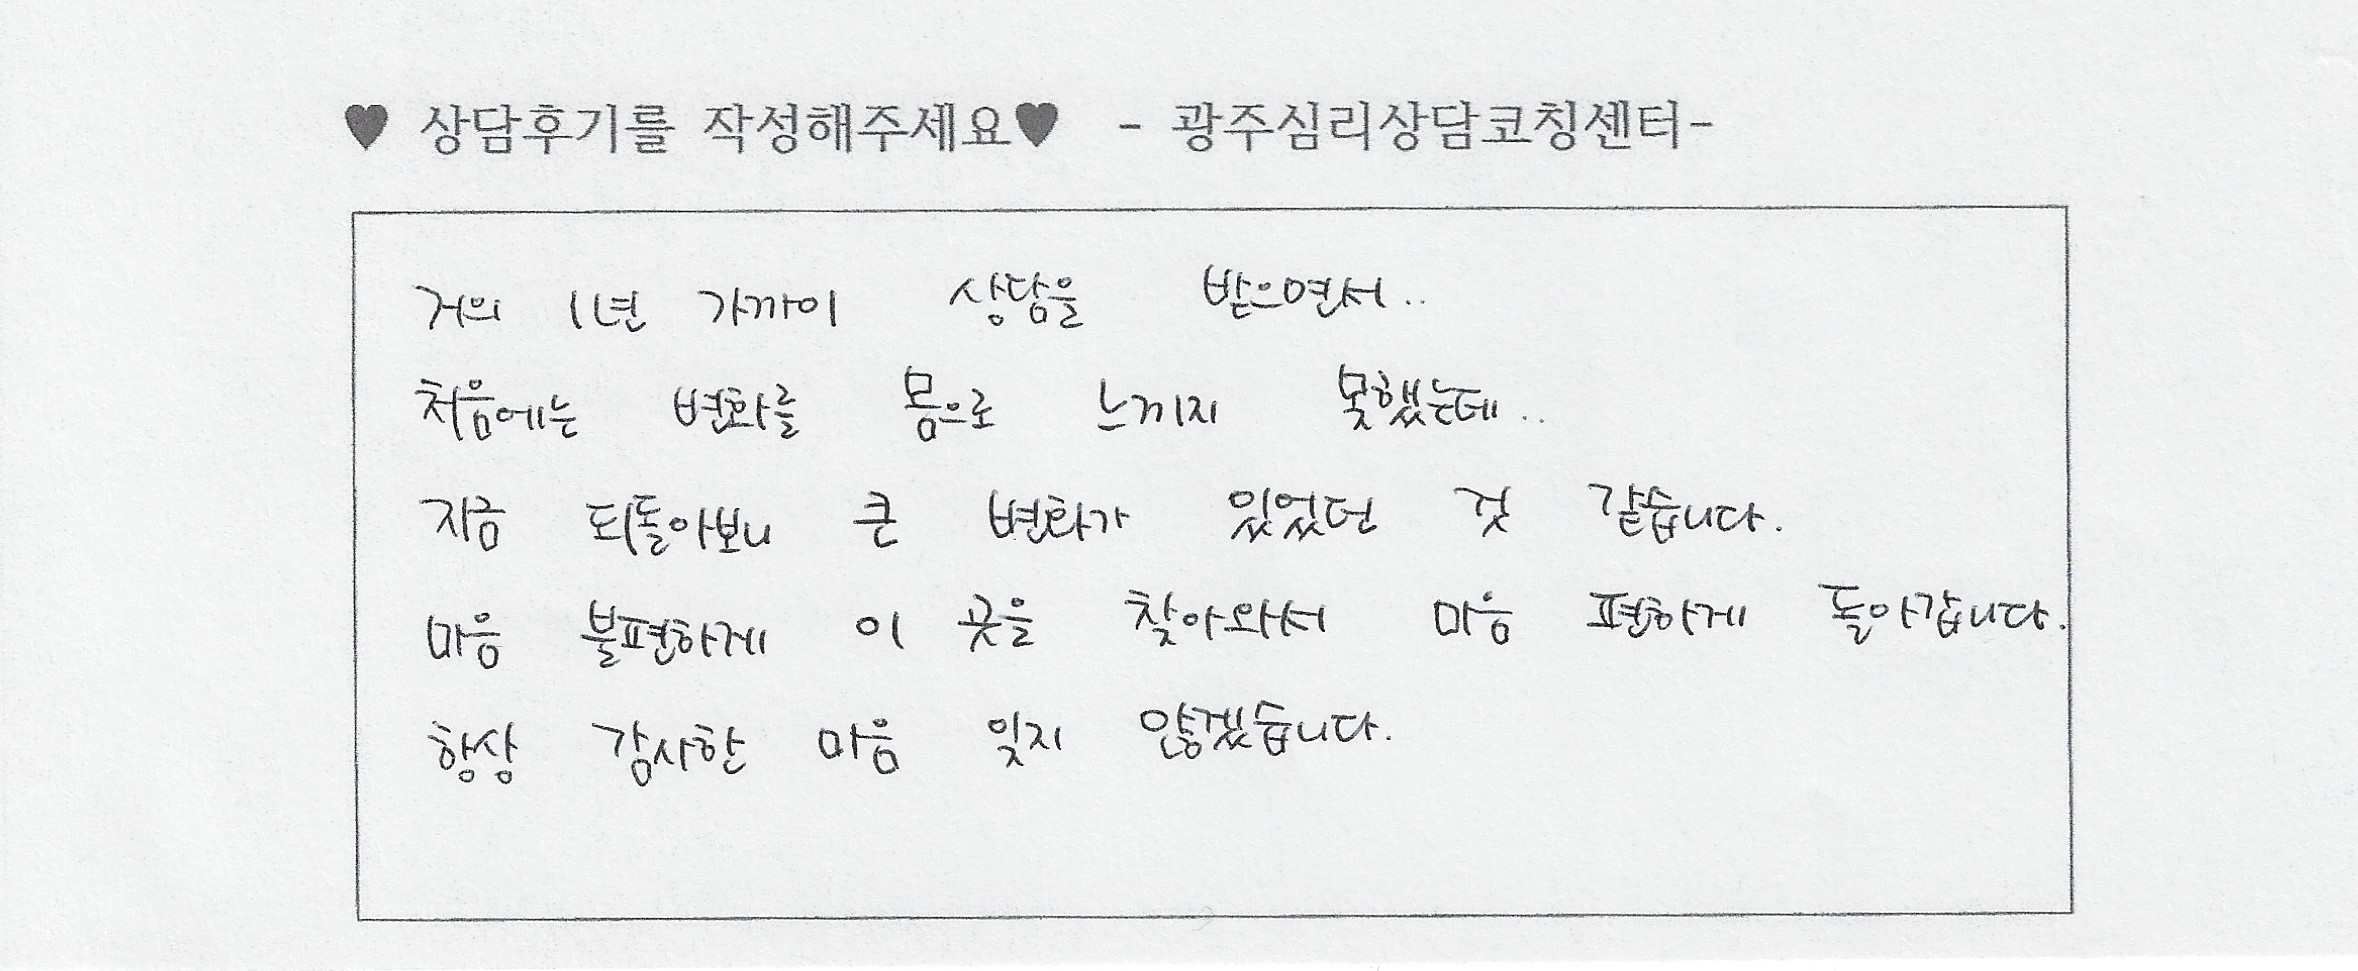 ♥ 상담후기를 작성해주세요♥ - 광주심리상담코칭센터-
거의 1년 가까이 상담을 받으면서..
처음에는 변화를 몸으로 느끼지 못했는데..
지금 되돌아보니 큰 변화가 있었던 것 같습니다.
마음 불편하게 이 곳을 찾아와서 마음 편하게 돌아갑니다.
항상 감사한 마음 잊지 않겠습니다.